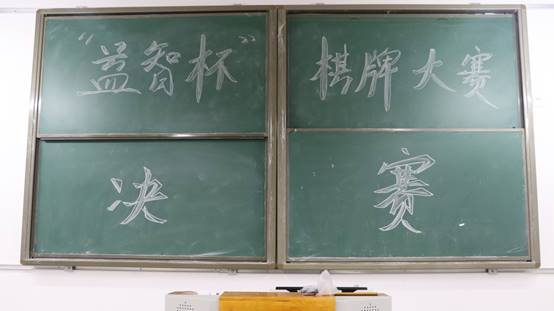 “益智杯”棋牌大赛
决赛